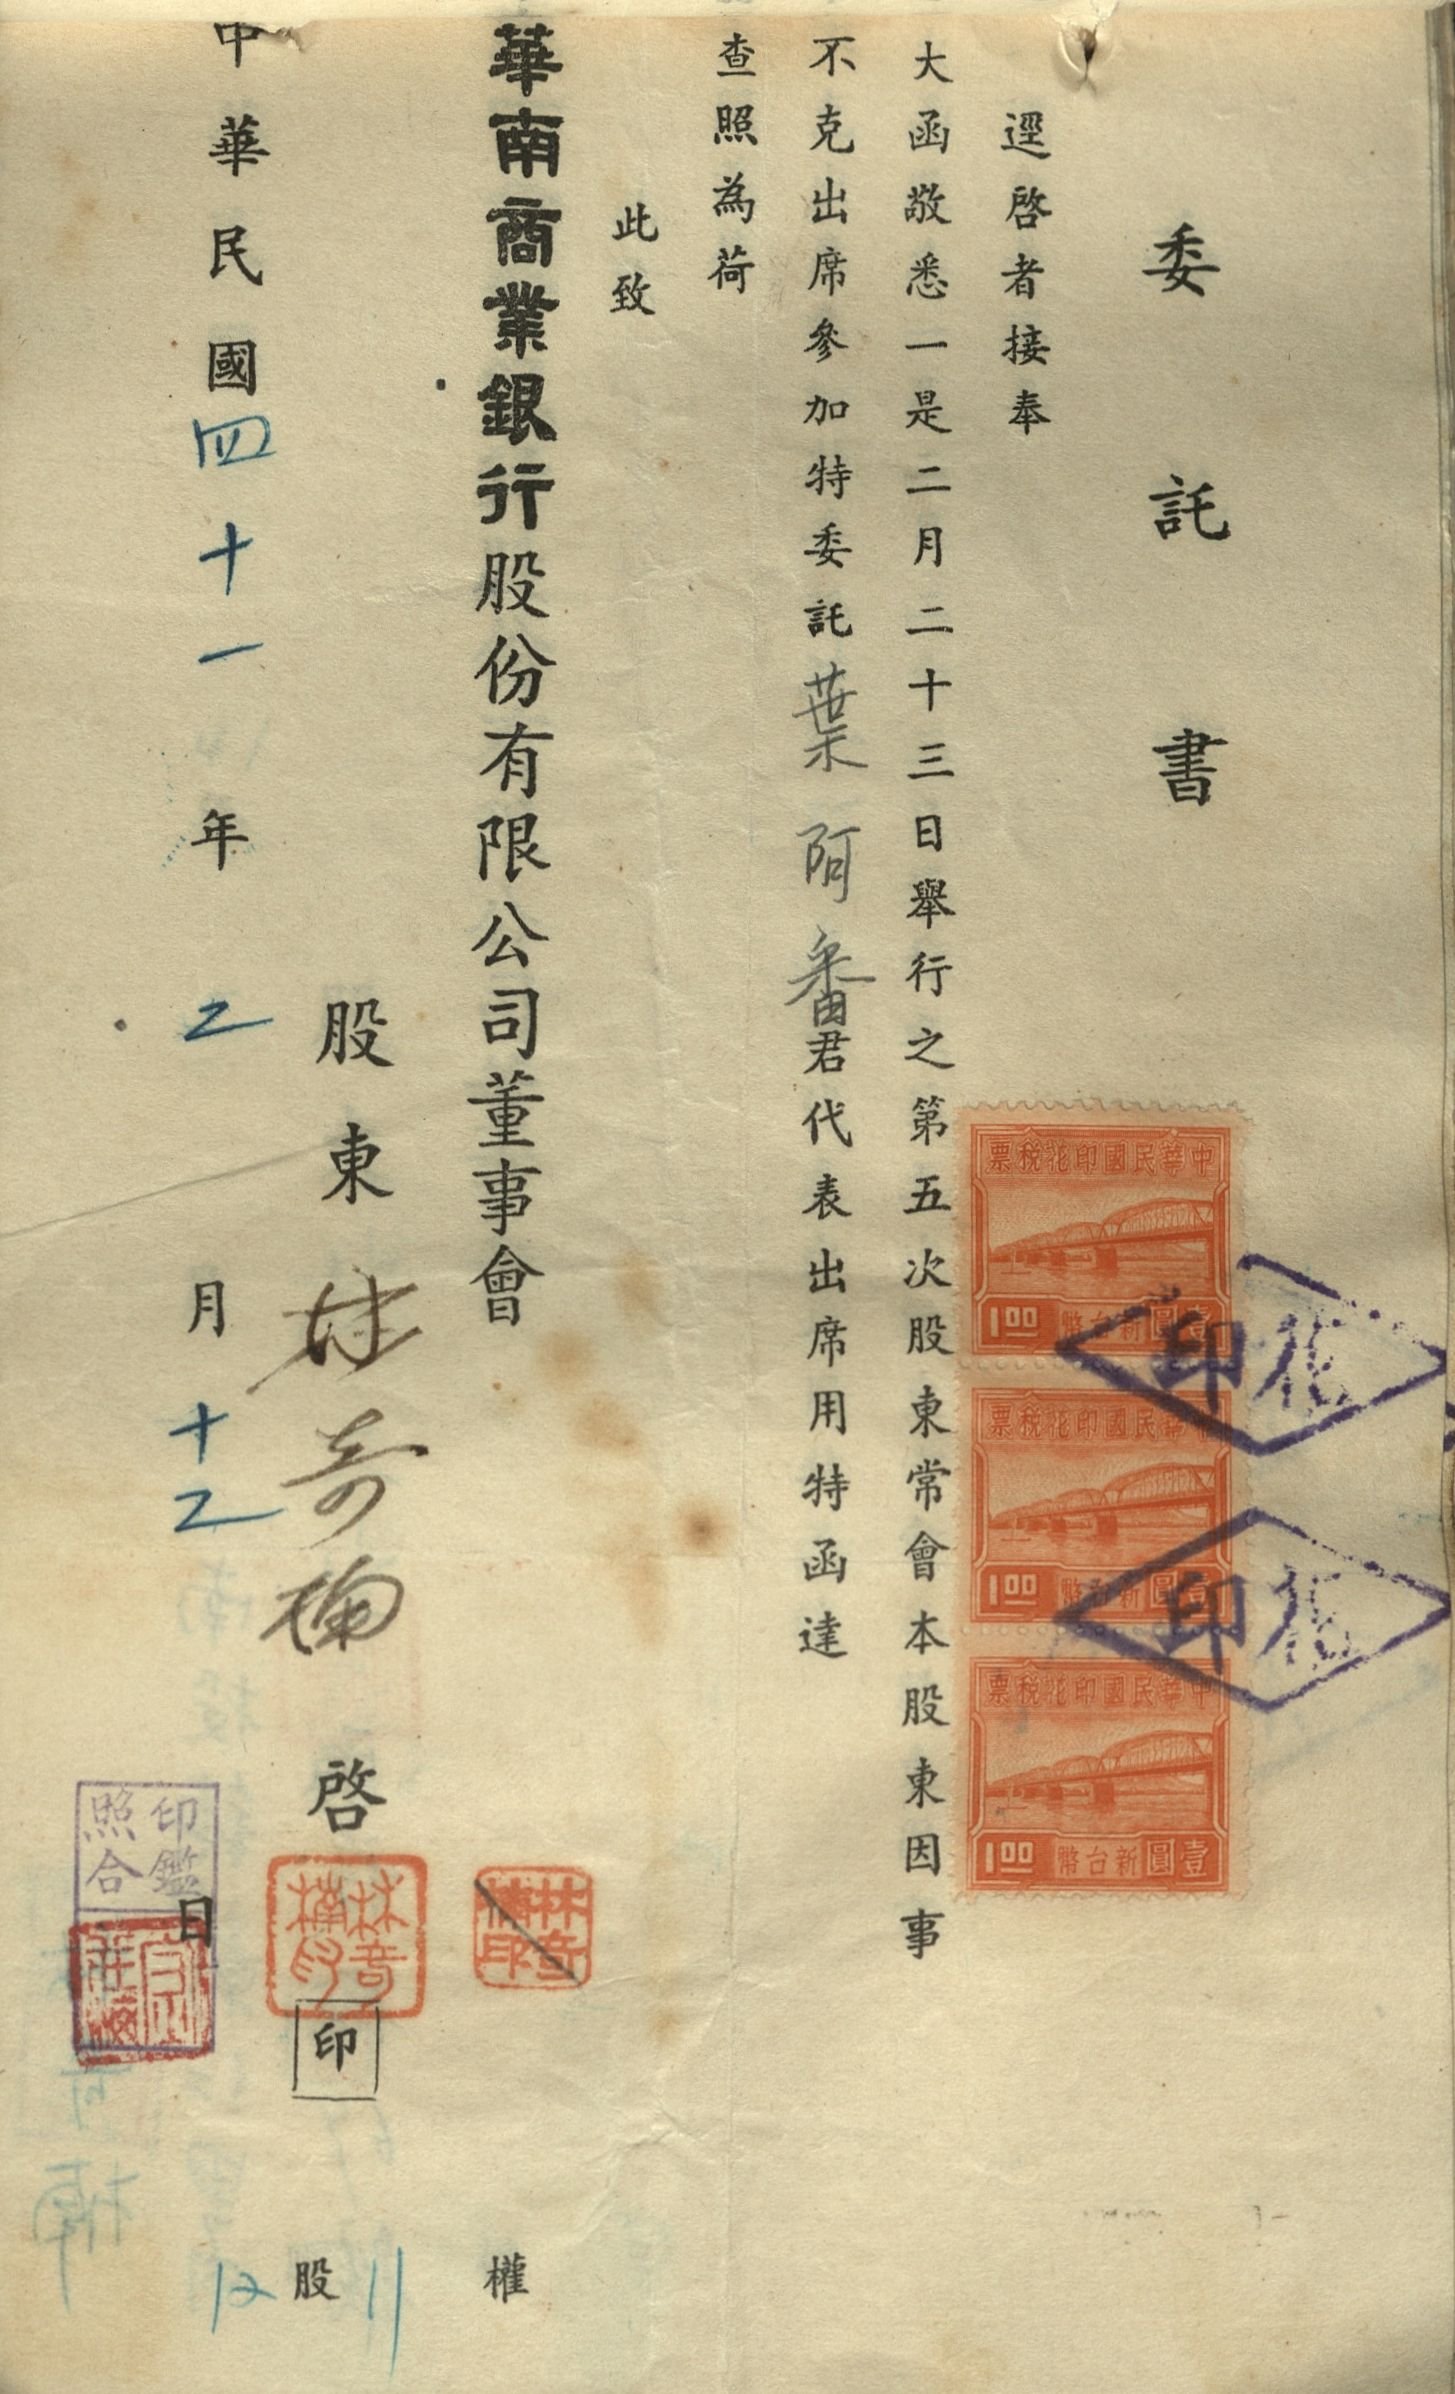 委託書
逕啓者接奉
大函敬悉一是二月二十三日舉行之第五次股東常會本股東因事
不克出席參加特委託葉阿番君代表出席用特函達
查照為荷
此致
華南商業銀行股份有限公司董事會
股東林奇楠啓
印
中華民國四十一年二月十二日
權
11
股
12
中華民國印花稅票
1.00
新台幣壹圓
中華民國印花稅票
1.00
新台幣壹圓
中華民國印花稅票
1.00
新台幣壹圓
花印
花印
林奇楠印
林奇楠印
印鑑照合